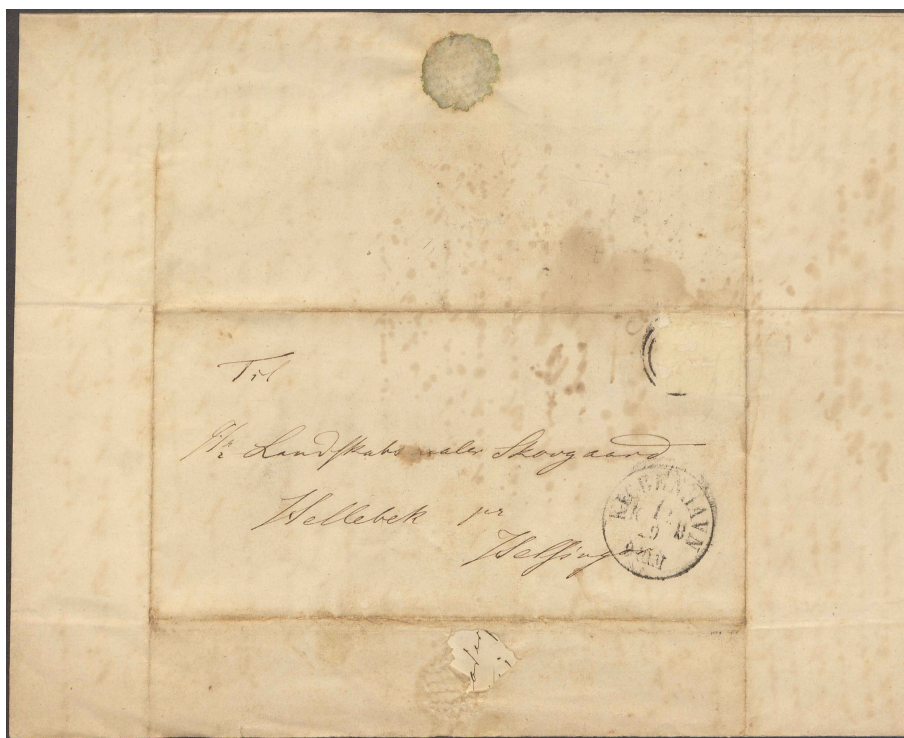 Til
Hr Landskabsmaler Skovgaard
Hellebek pr
KIØBENHAVN